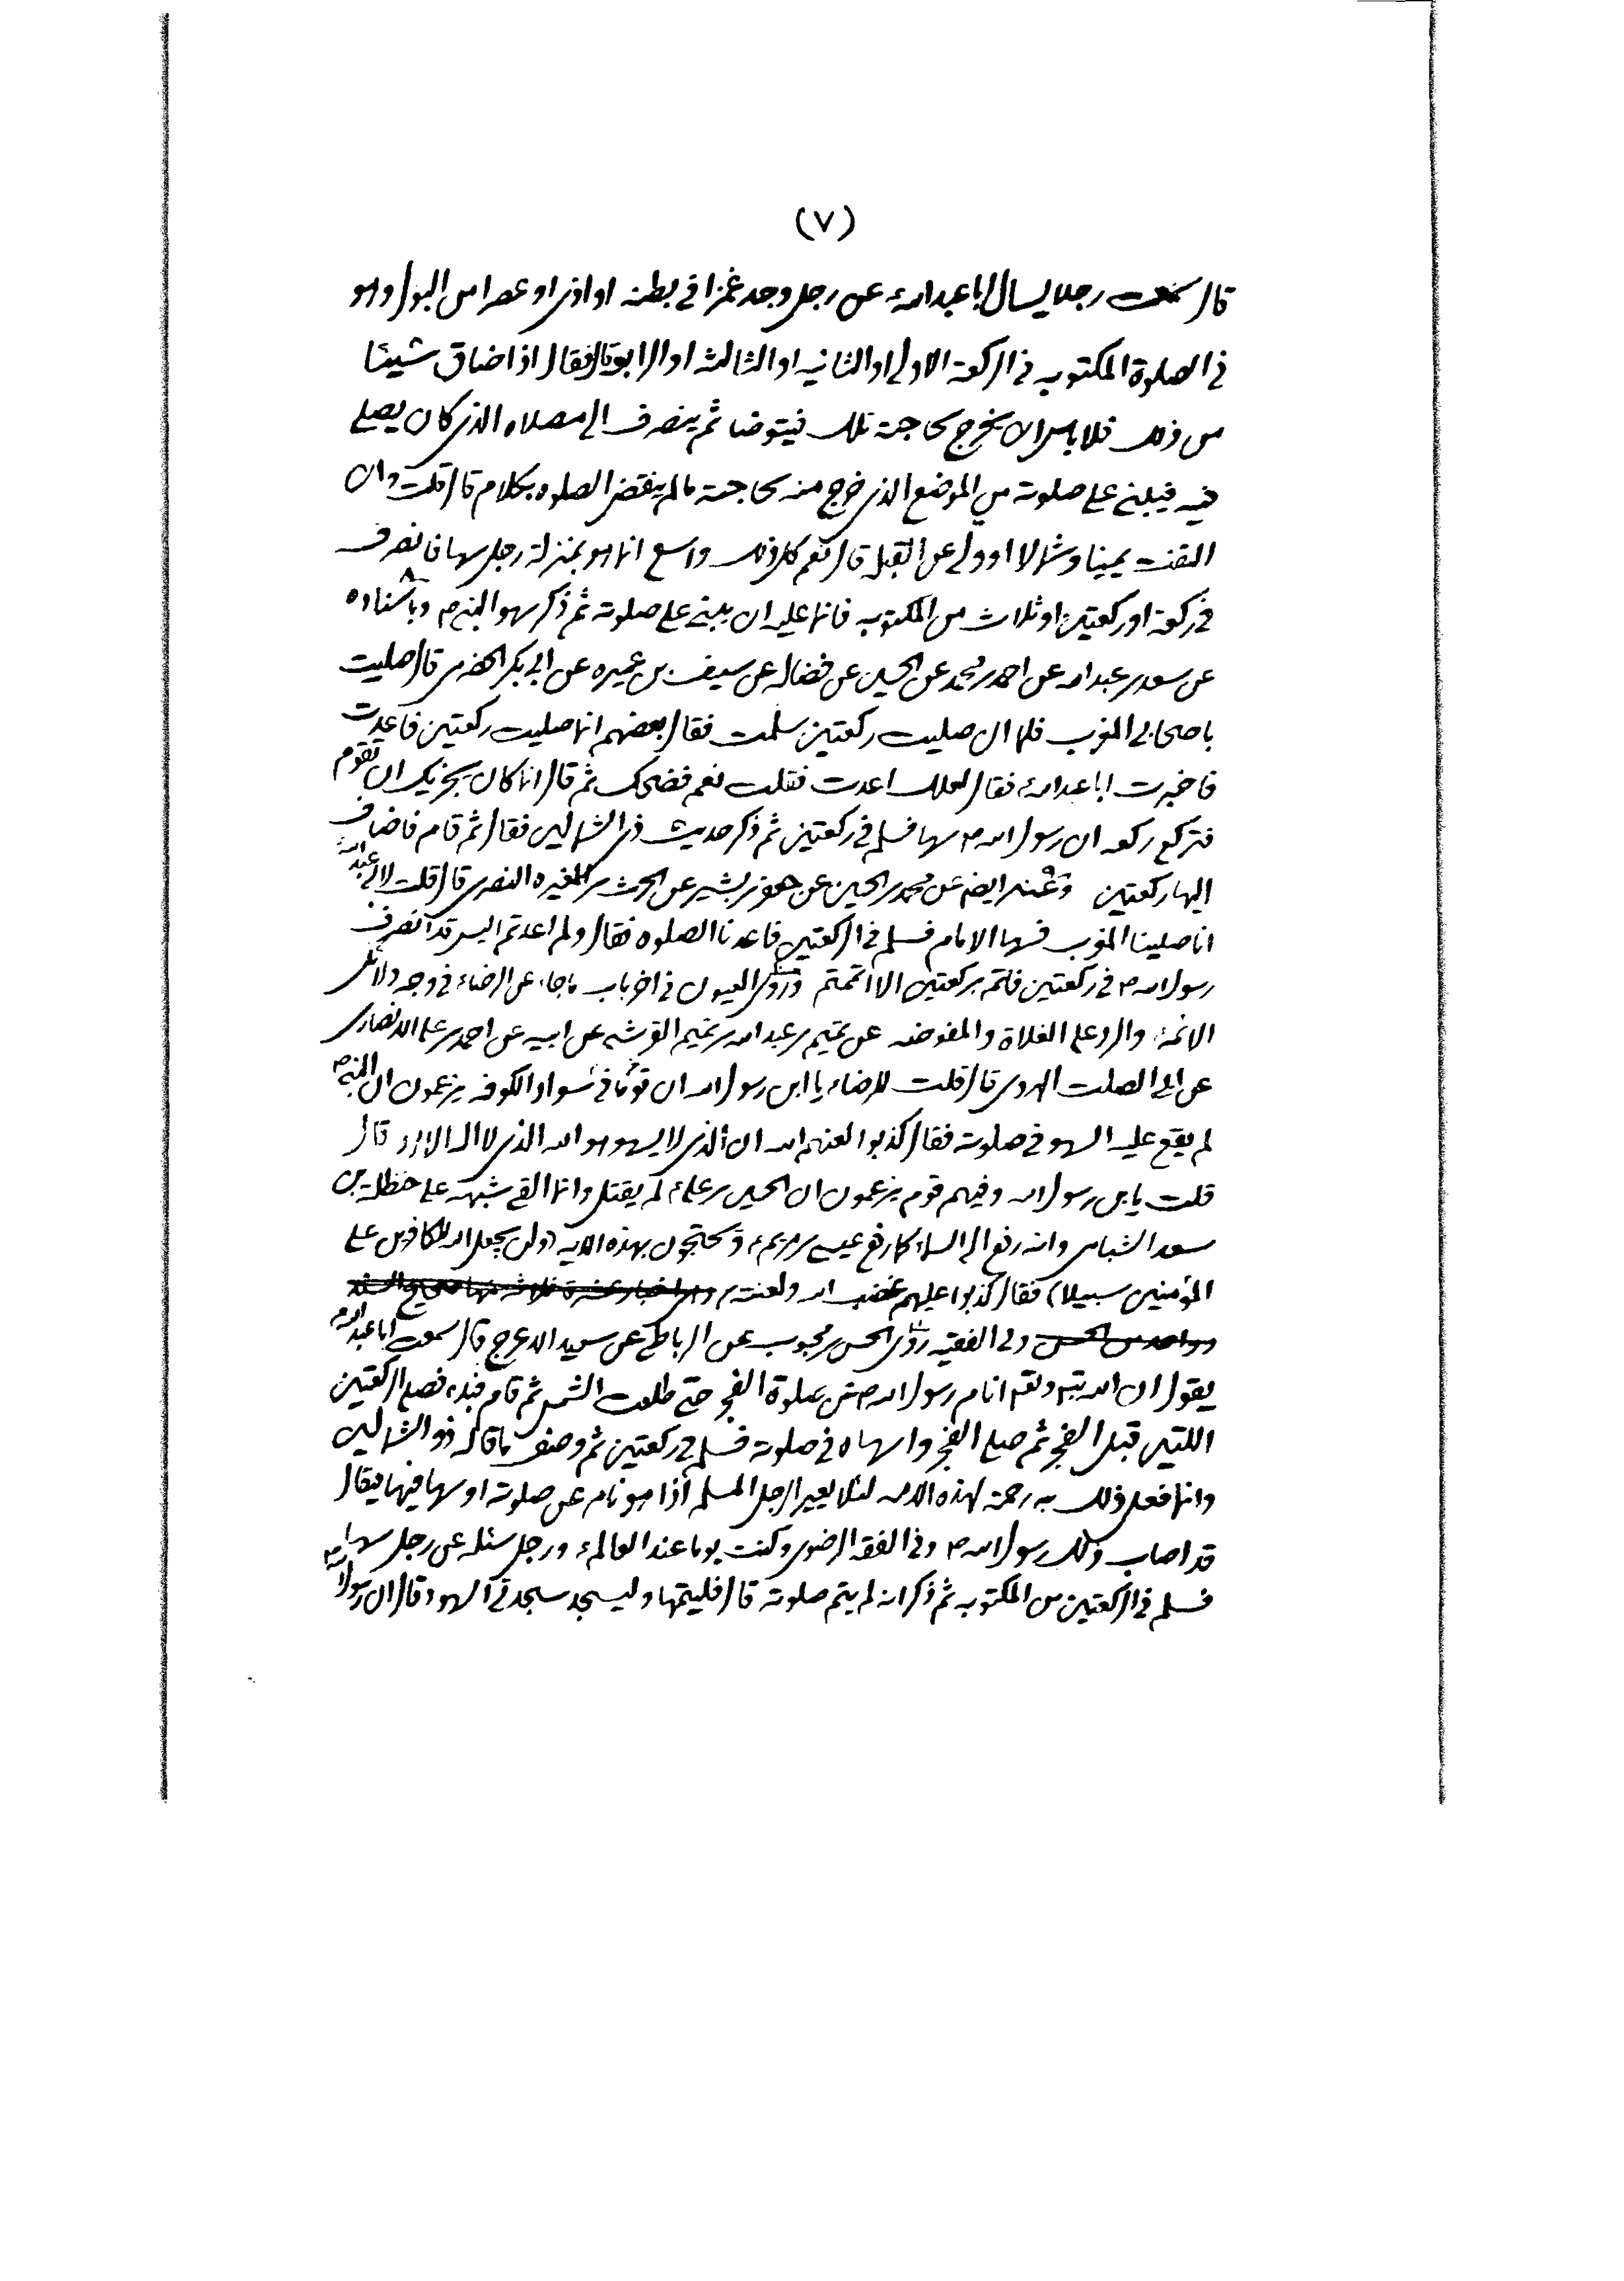 (٧)
قال سمعت رجلا يسال ابا عبدالله ع عن رجل وجد غمزا في بطنه او اذى او عصرا من البول وهو
في الصلوة المكتوبه في الركعة الاولى او الثانيه او الثالثه او الرابعة قال فقال اذا اضاق شيئا
من ذلك فلا باس ان يخرج لحاجته تلك فيتوضا ثم ينصرف الى مصلاه الذى كان يصلى
فيه فيبنى على صلوته من الموضع الذى خرج منه لحاجته مالم ينقض الصلوه بكلام قال قلت وان
التفت يمينا وشمالا او ولى عن القبله قال نعم كل ذلك واسع انما هو بمنزلة رجل سها فانصرف
في ركعة او ركعتين او ثلاث من المكتوبه فانما عليه ان يبنى على صلوته ثم ذكر سهو النبى ص وباسناده
عن سعد بن عبدالله عن احمد بن محمد عن الحسين عن فضاله عن سيف بن عميره عن ابى بكر الحضرمى قال صليت
باصحابى المغرب فلما ان صليت ركعتين سلمت فقال بعضهم انما صليت ركعتين فاعدت
فاخبرت ابا عبدالله ع فقال لعلك اعدت فقلت نعم فضحك ثم قال انما كان يجزيك ان تقوم
فتركع ركعه ان رسول الله ص سها فسلم في ركعتين ثم ذكر حديث ذى الشمالين فقال ثم قام فاضاف
اليها ركعتين وعنه ايضا عن محمد بن الحسين عن جعفر بن بشير عن الحرث بن المغيره النصرى قال قلت لابى عبدالله ع
انا صلينا المغرب فسها الامام فسلم في الركعتين فاعدنا الصلوه فقال ولم اعدتم اليس قد انصرف
رسول الله ص في ركعتين فاتم بركعتين الا اتممتم وروى العيون في اخر باب ماجاء عن الرضا ع في وجه دلائل
الائمة ع والرد على الغلاة والمفوضه عن تميم بن عبدالله بن تميم القرشى عن ابيه عن احمد بن على الانصارى
عن ابى الصلت الهروى قال قلت للرضا ع يا ابن رسول الله ان قوما في سواد الكوفه يزعمون ان النبى ص
لم يقع عليه السهو في صلوته فقال كذبوا لعنهم الله ان الذى لا يسهو هو الله الذى لا اله الا هو قال
قلت يابن رسول الله وفيهم قوم يزعمون ان الحسين بن على ع لم يقتل وانما القى شبهه على حنظلة بن
سعد الشبامى وانه رفع الى السماء كما رفع عيسى بن مريم ع وتحتجون بهذه الايه (ولن يجعل الله للكافرين على
المؤمنين سبيلا) فقال كذبوا عليهم غضب الله ولعنته
وفى الفقيه روى الحسن بن محبوب عن الرباطى عن سعيد الاعرج قال سمعت ابا عبدالله ع
يقول ان الله تبه وتعه انام رسول الله ص عن صلوة الفجر حتى طلعت الشمس ثم قام فبدء فصلى الركعتين
اللتين قبل الفجر ثم صلى الفجر واسهاه في صلوته فسلم في ركعتين ثم وصف ماقاله ذو الشمالين
وانما فعل ذلك به رحمة لهذه الامه لئلا يعير الرجل المسلم اذا هو نام عن صلوته او سها فيها فيقال
قد اصاب ذلك رسول الله ص وفى الفقه الرضوى وكنت يوما عند العالم ع ورجل سئله عن رجل سها
فسلم في الركعتين من المكتوبه ثم ذكر انه لم يتم صلوته قال فليتمها وليسجد سجدتى السهو وقال ان رسول الله ص